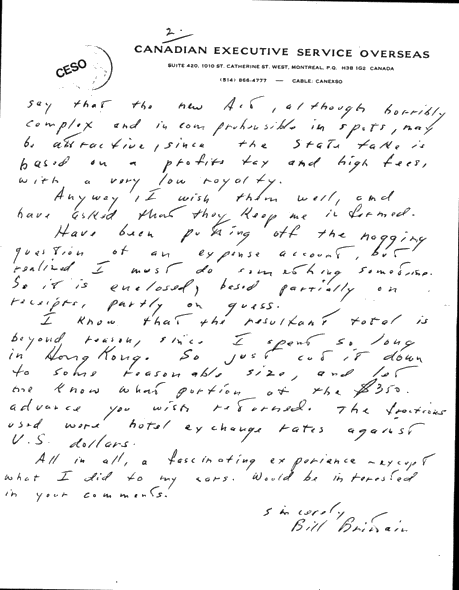 2.
CESO
CANADIAN EXECUTIVE SERVICE OVERSEAS
SUITE 420, 1010 ST. CATHERINE ST. WEST, MONTREAL, P.Q. H3B 1G2 CANADA
(514) 866-4777 — CABLE: CANEXSO
say that the new Act, although horribly
complex and incomprehensible in spots, may
be attractive, since the State take is
based on a profits tax and high fees,
with a very low royalty.
Anyway, I wish them well, and
have asked that they keep me informed.
Have been putting off the nagging
question of an expense account, but
realized I must do something sometime.
So it is enclosed, based partially on
receipts, partly on guess.
I know that the resultant total is
beyond reason, since I spent so long
in Hong Kong. So just cut it down
to some reasonable size, and let
me know what portion of the $350.
advance you wish returned. The fractions
used were hotel exchange rates against
U.S. dollars.
All in all, a fascinating experience – except
what I did to my ears. Would be interested
in your comments.
Sincerely
Bill Brittain